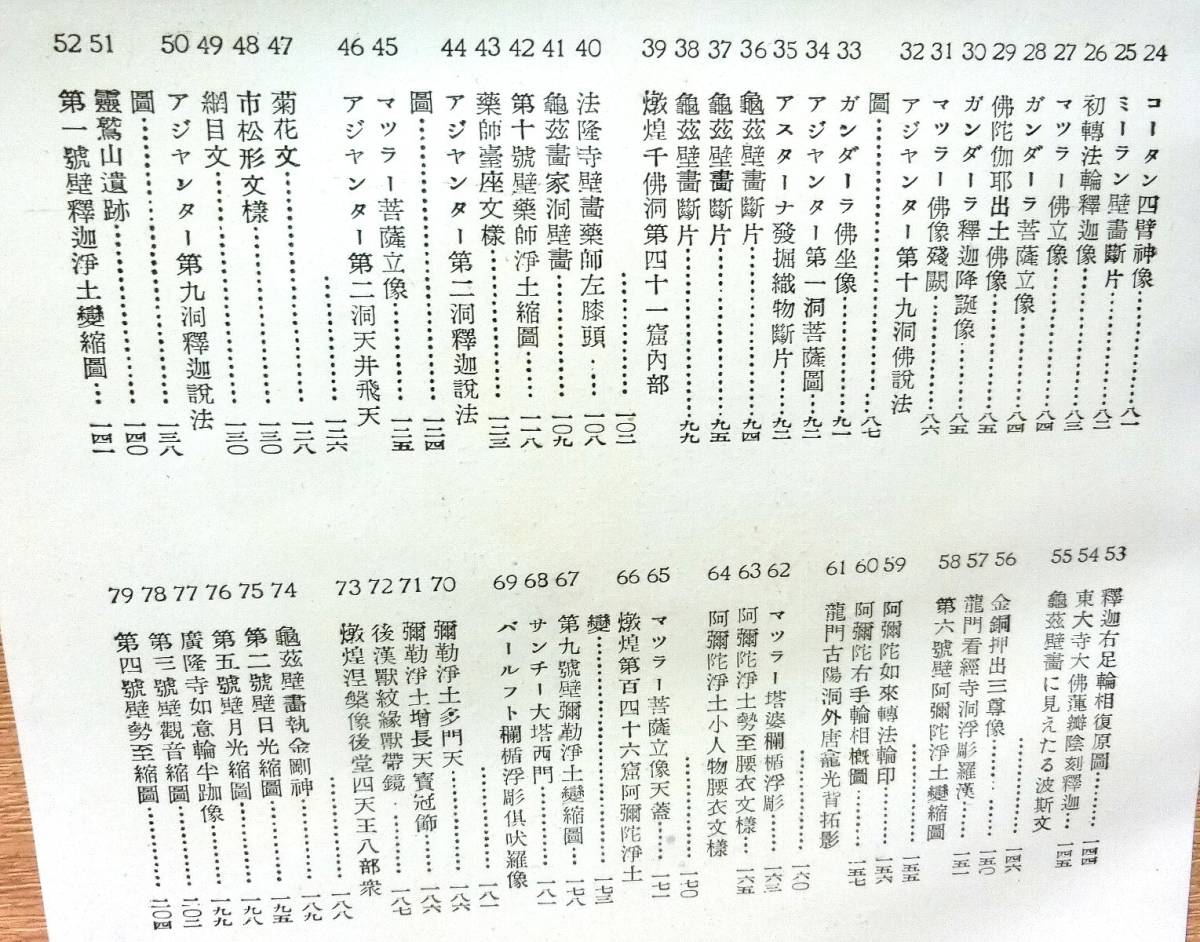 24 コータン四臂神像……八一
25 ミーラン壁畫斷片……八二
26 初轉法輪釋迦像……八三
27 マツラー佛立像……八四
28 ガンダーラ菩薩立像……八四
29 佛陀伽耶出土佛像……八五
30 ガンダーラ釋迦降誕像……八五
31 マツラー佛像殘闕……八六
32 アジャンター第十九洞佛說法
圖……八七
33 ガンダーラ佛坐像……九一
34 アジャンター第一洞菩薩圖……九二
35 アスターナ發掘織物斷片……九二
36 龜茲壁畫斷片……九四
37 龜茲壁畫斷片……九五
38 龜茲壁畫斷片……九九
39 燉煌千佛洞第四十一窟內部
……一〇二
40 法隆寺壁畫藥師左膝頭……一〇八
41 龜茲畫家洞壁畫……一〇九
42 第十號壁藥師淨土縮圖……一一八
43 藥師臺座文樣……一二三
44 アジャンター第二洞釋迦說法
圖……一二四
45 マツラー菩薩立像……一二五
46 アジャンター第二洞天井飛天
……一二六
47 菊花文……一二八
48 市松形文樣……一三〇
49 網目文……一三〇
50 アジャンター第九洞釋迦說法
圖……一三八
51 靈鷲山遺跡……一四〇
52 第一號壁釋迦淨土變縮圖……一四一
53 釋迦右足輪相復原圖……一四四
54 東大寺大佛蓮瓣陰刻釋迦……一四五
55 龜茲壁畫に見えたる波斯文
……一四六
56 金銅押出三尊像……一五〇
57 龍門看經寺洞浮彫羅漢……一五一
58 第六號壁阿彌陀淨土變縮圖
……一五五
59 阿彌陀如來轉法輪印……一五六
60 阿彌陀右手輪相概圖……一五七
61 龍門古陽洞外唐龕光背拓影
……一六〇
62 マツラー塔婆欄楯浮彫……一六三
63 阿彌陀淨土勢至腰衣文樣……一六五
64 阿彌陀淨土小人物腰衣文樣
……一七〇
65 マツラー菩薩立像天蓋……一七一
66 燉煌第百四十六窟阿彌陀淨土
變……一七三
67 第九號壁彌勒淨土變縮圖……一七八
68 サンチー大塔西門……一八一
69 バールフト欄楯浮彫俱吠羅像
……一八一
70 彌勒淨土多門天……一八六
71 彌勒淨土增長天寶冠飾……一八六
72 後漢獸紋緣獸帶鏡……一八七
73 燉煌涅槃像後堂四天王八部衆
……一八八
74 龜茲壁畫執金剛神……一八九
75 第二號壁日光縮圖……一九五
76 第五號壁月光縮圖……一九八
77 廣隆寺如意輪半跏像……一九九
78 第三號壁觀音縮圖……二〇二
79 第四號壁勢至縮圖……二〇四